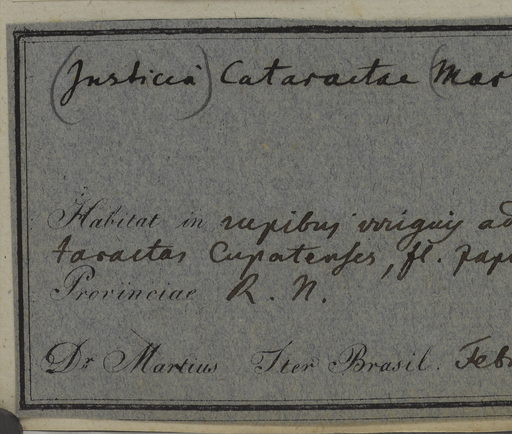 (Justicia) Cataractae (Mar
Habitat in rupibus irriguis ad
taractas Cupatenses, fl. Japu
Provinciae R. N.
Dr Martius Iter Brasil. Febr